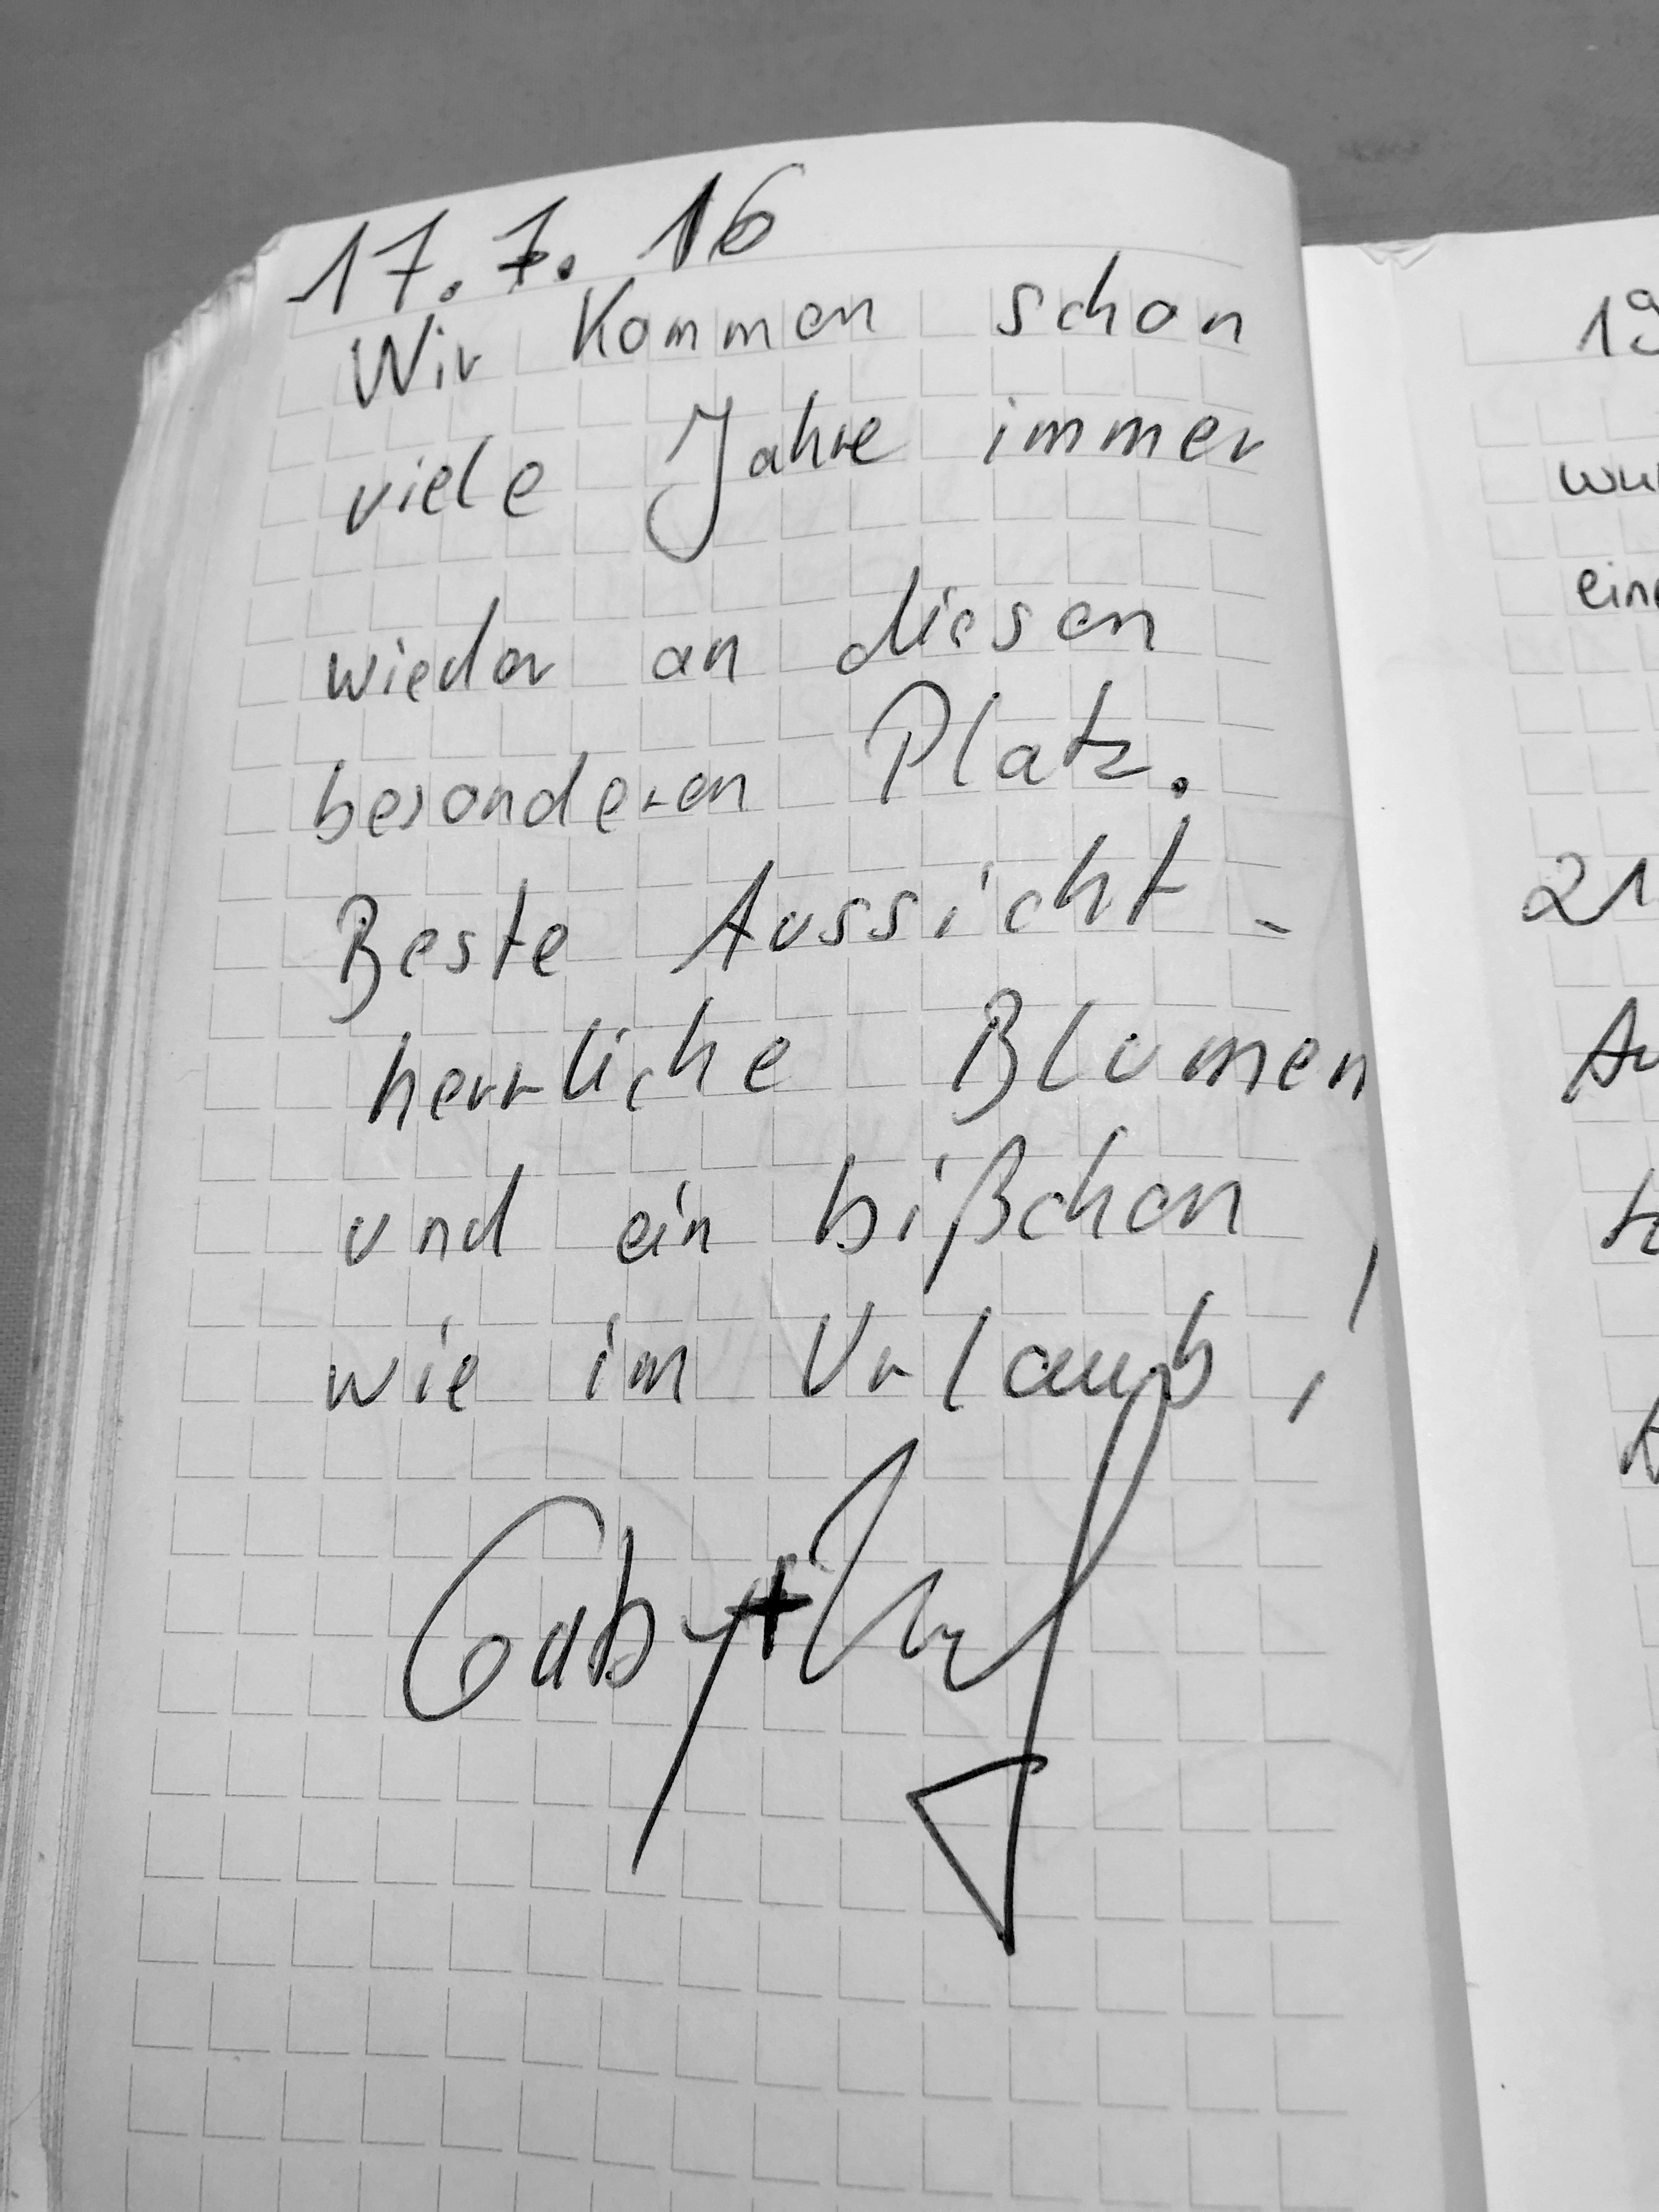 17.7.16
Wir kommen schon
viele Jahre immer
wieder an diesen
besonderen Platz.
Beste Aussicht -
herrliche Blumen
und ein bißchen
wie im Urlaub!
Gaby +
19
21